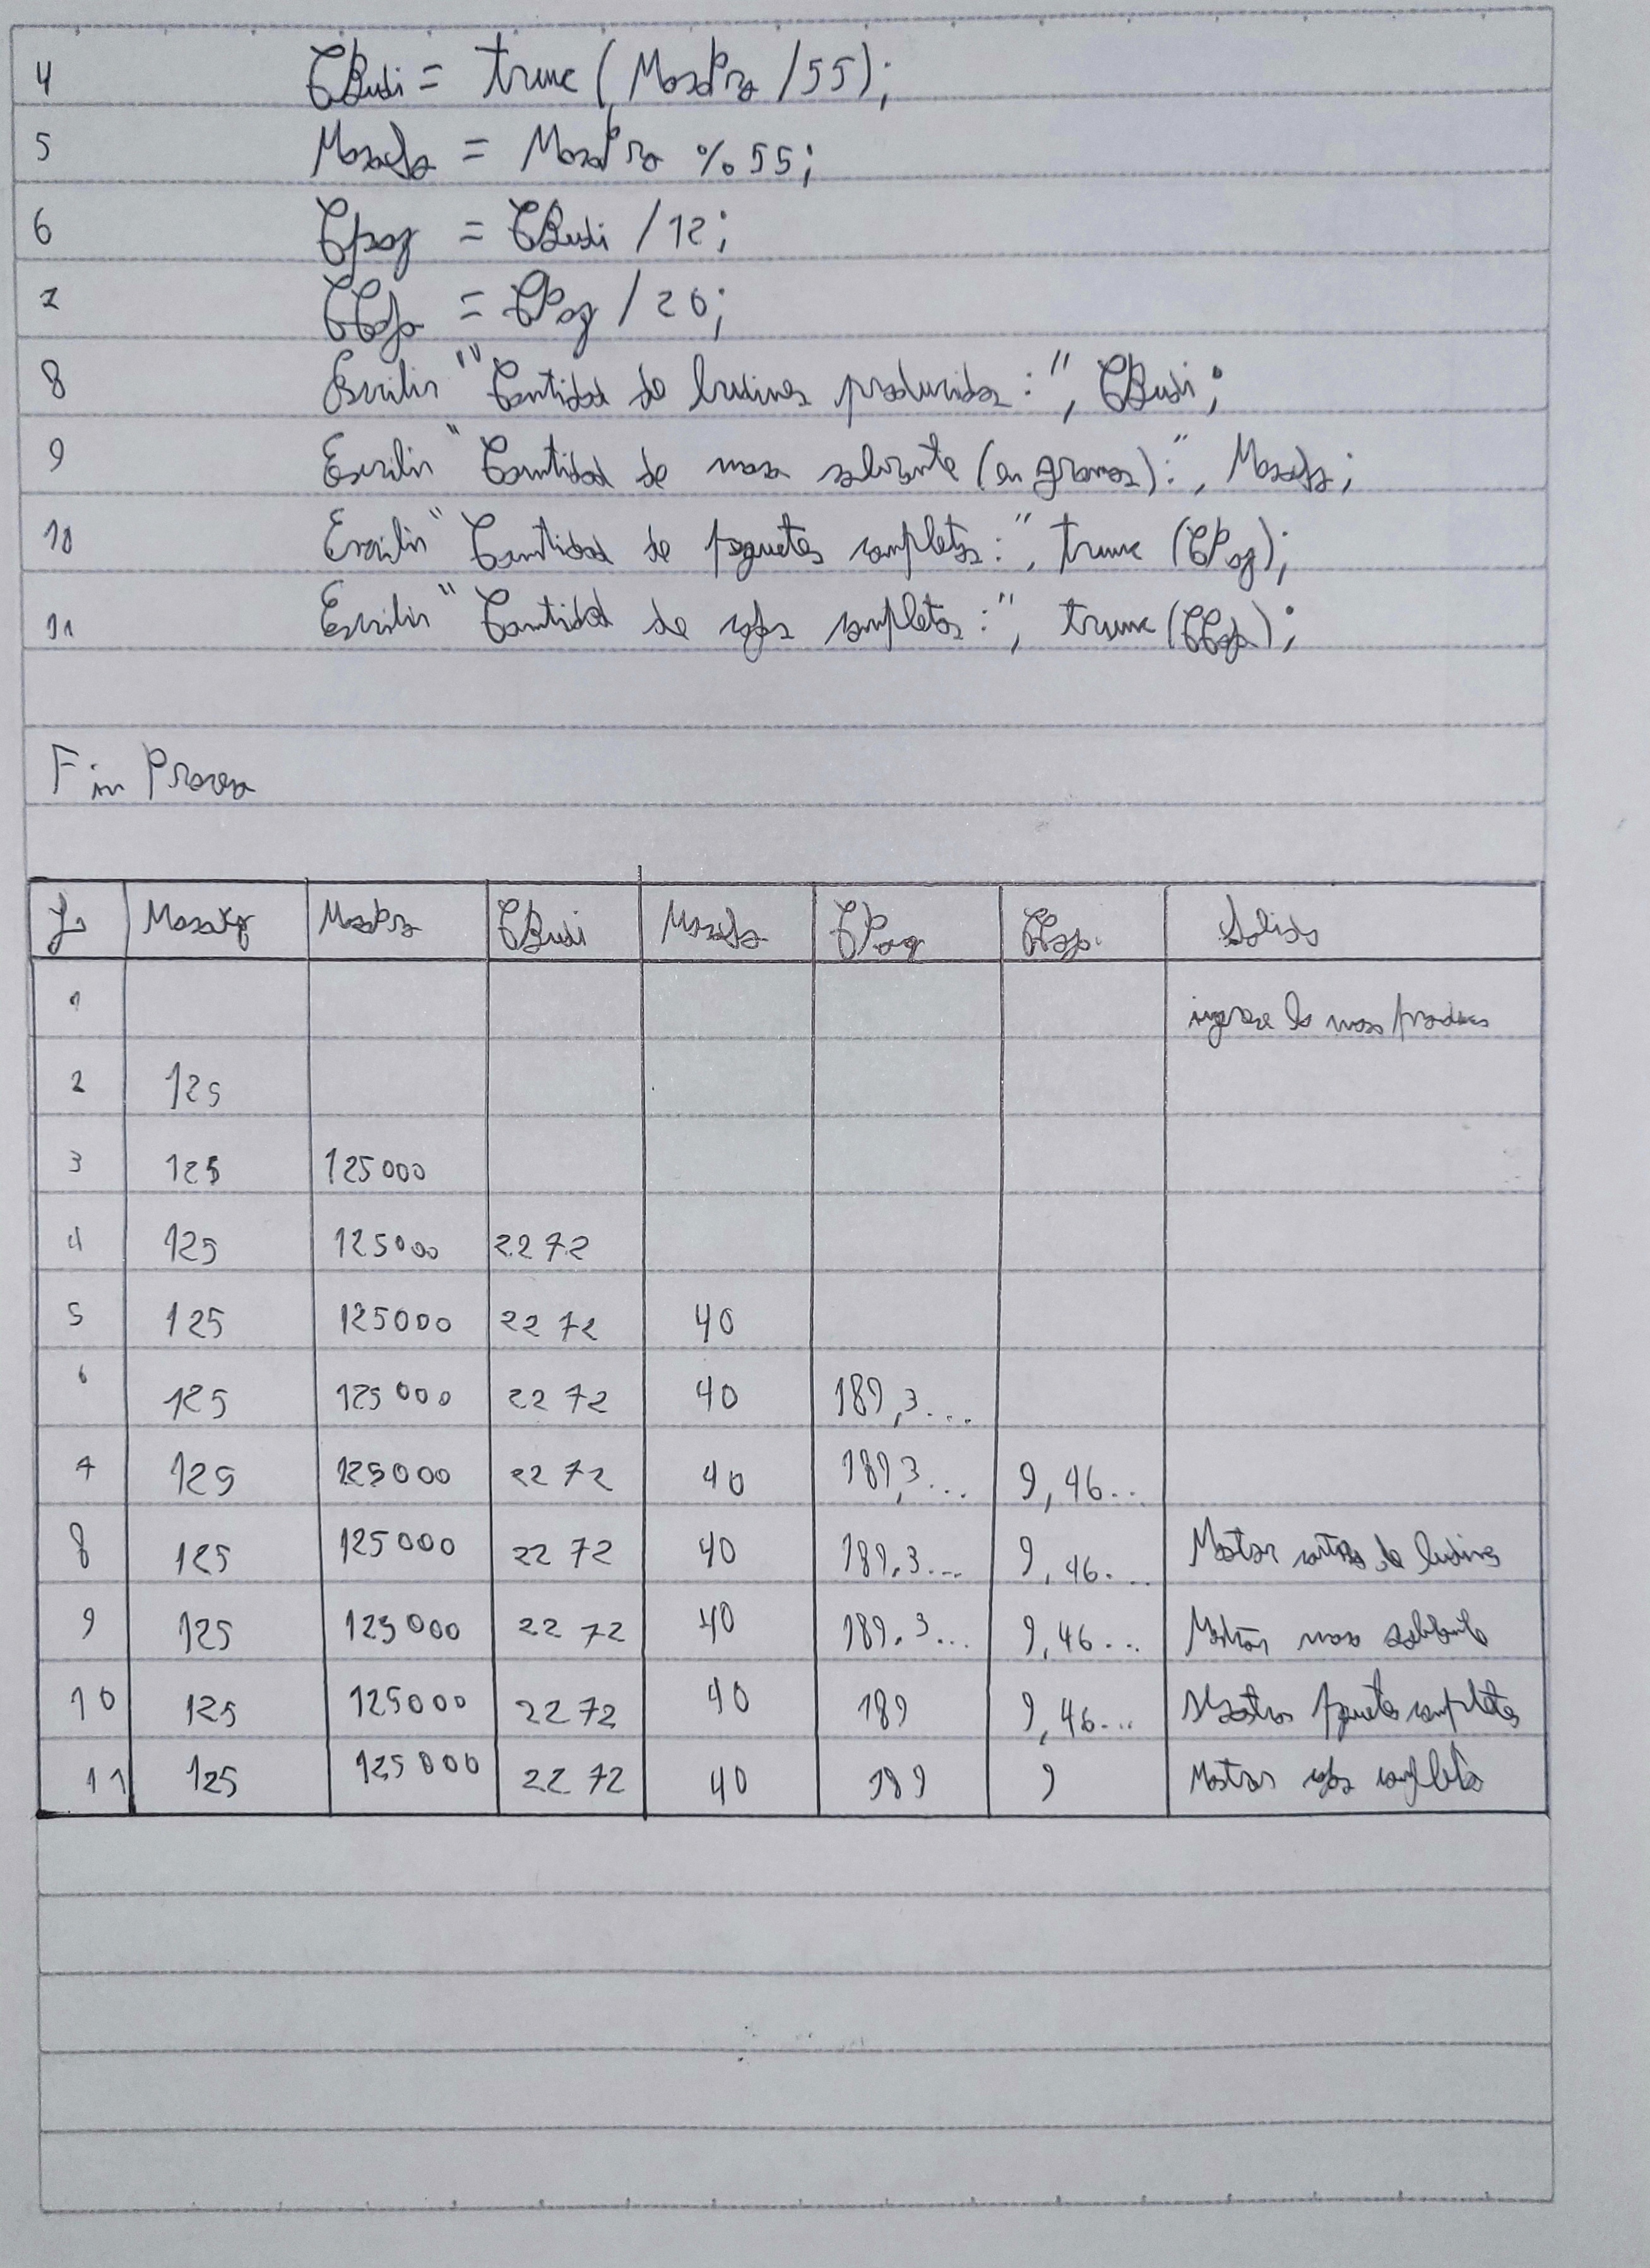 4 CBudi = trunc (MasaPro /55);
5 MasaSo = MasaPro % 55;
6 Cpaq = CBudi /12;
7 CCaja = CPaq / 20;
8 Escribir "Cantidad de budines producidos:", CBudi;
9 Escribir "Cantidad de masa sobrante (en gramos):", MasaSo;
10 Escribir "Cantidad de paquetes completos:", trunc (CPaq);
11 Escribir "Cantidad de cajas completas:", trunc (CCaja);
Fin Proceso
L MasaKg MasaPro CBudi MasaSo CPaq CCaja. Salida
1 ingrese la masa
2 125
3 125 125000
4 125 125000 2272
5 125 125000 2272 40
6 125 125000 2272 40 189,3...
7 125 125000 2272 40 189,3... 9,46...
8 125 125000 2272 40 189,3... 9,46... Mostrar de budines
9 125 125000 2272 40 189,3... 9,46... Mostrar masa sobrante
10 125 125000 2272 40 189 9,46... Mostrar paquetes completos
11 125 125000 2272 40 189 9 Mostrar cajas completas